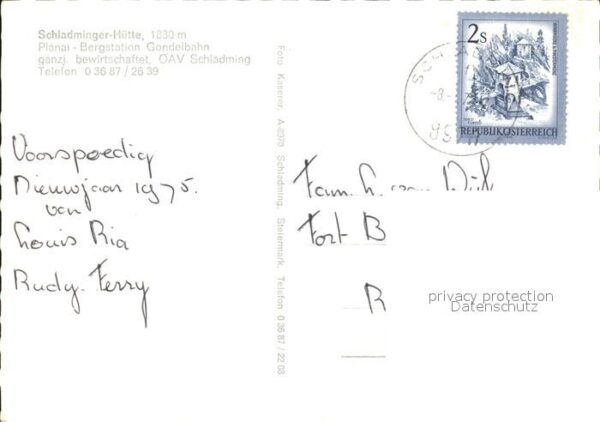 Schladminger-Hütte, 1830 m
Planai - Bergstation Gondelbahn
ganzj. bewirtschaftet, OAV Schladming
Telefon 0 36 87 / 26 39
Voorspoedig
Nieuwjaar 1975.
van
Louis Ria
Rudy. Ferry
Foto Kaserer, A-8970 Schladming, Steiermark, Telefon 0 36 87 / 22 03
2s
REPUBLIK ÖSTERREICH
Fam.
Fort B
R
privacy protection
Datenschutz